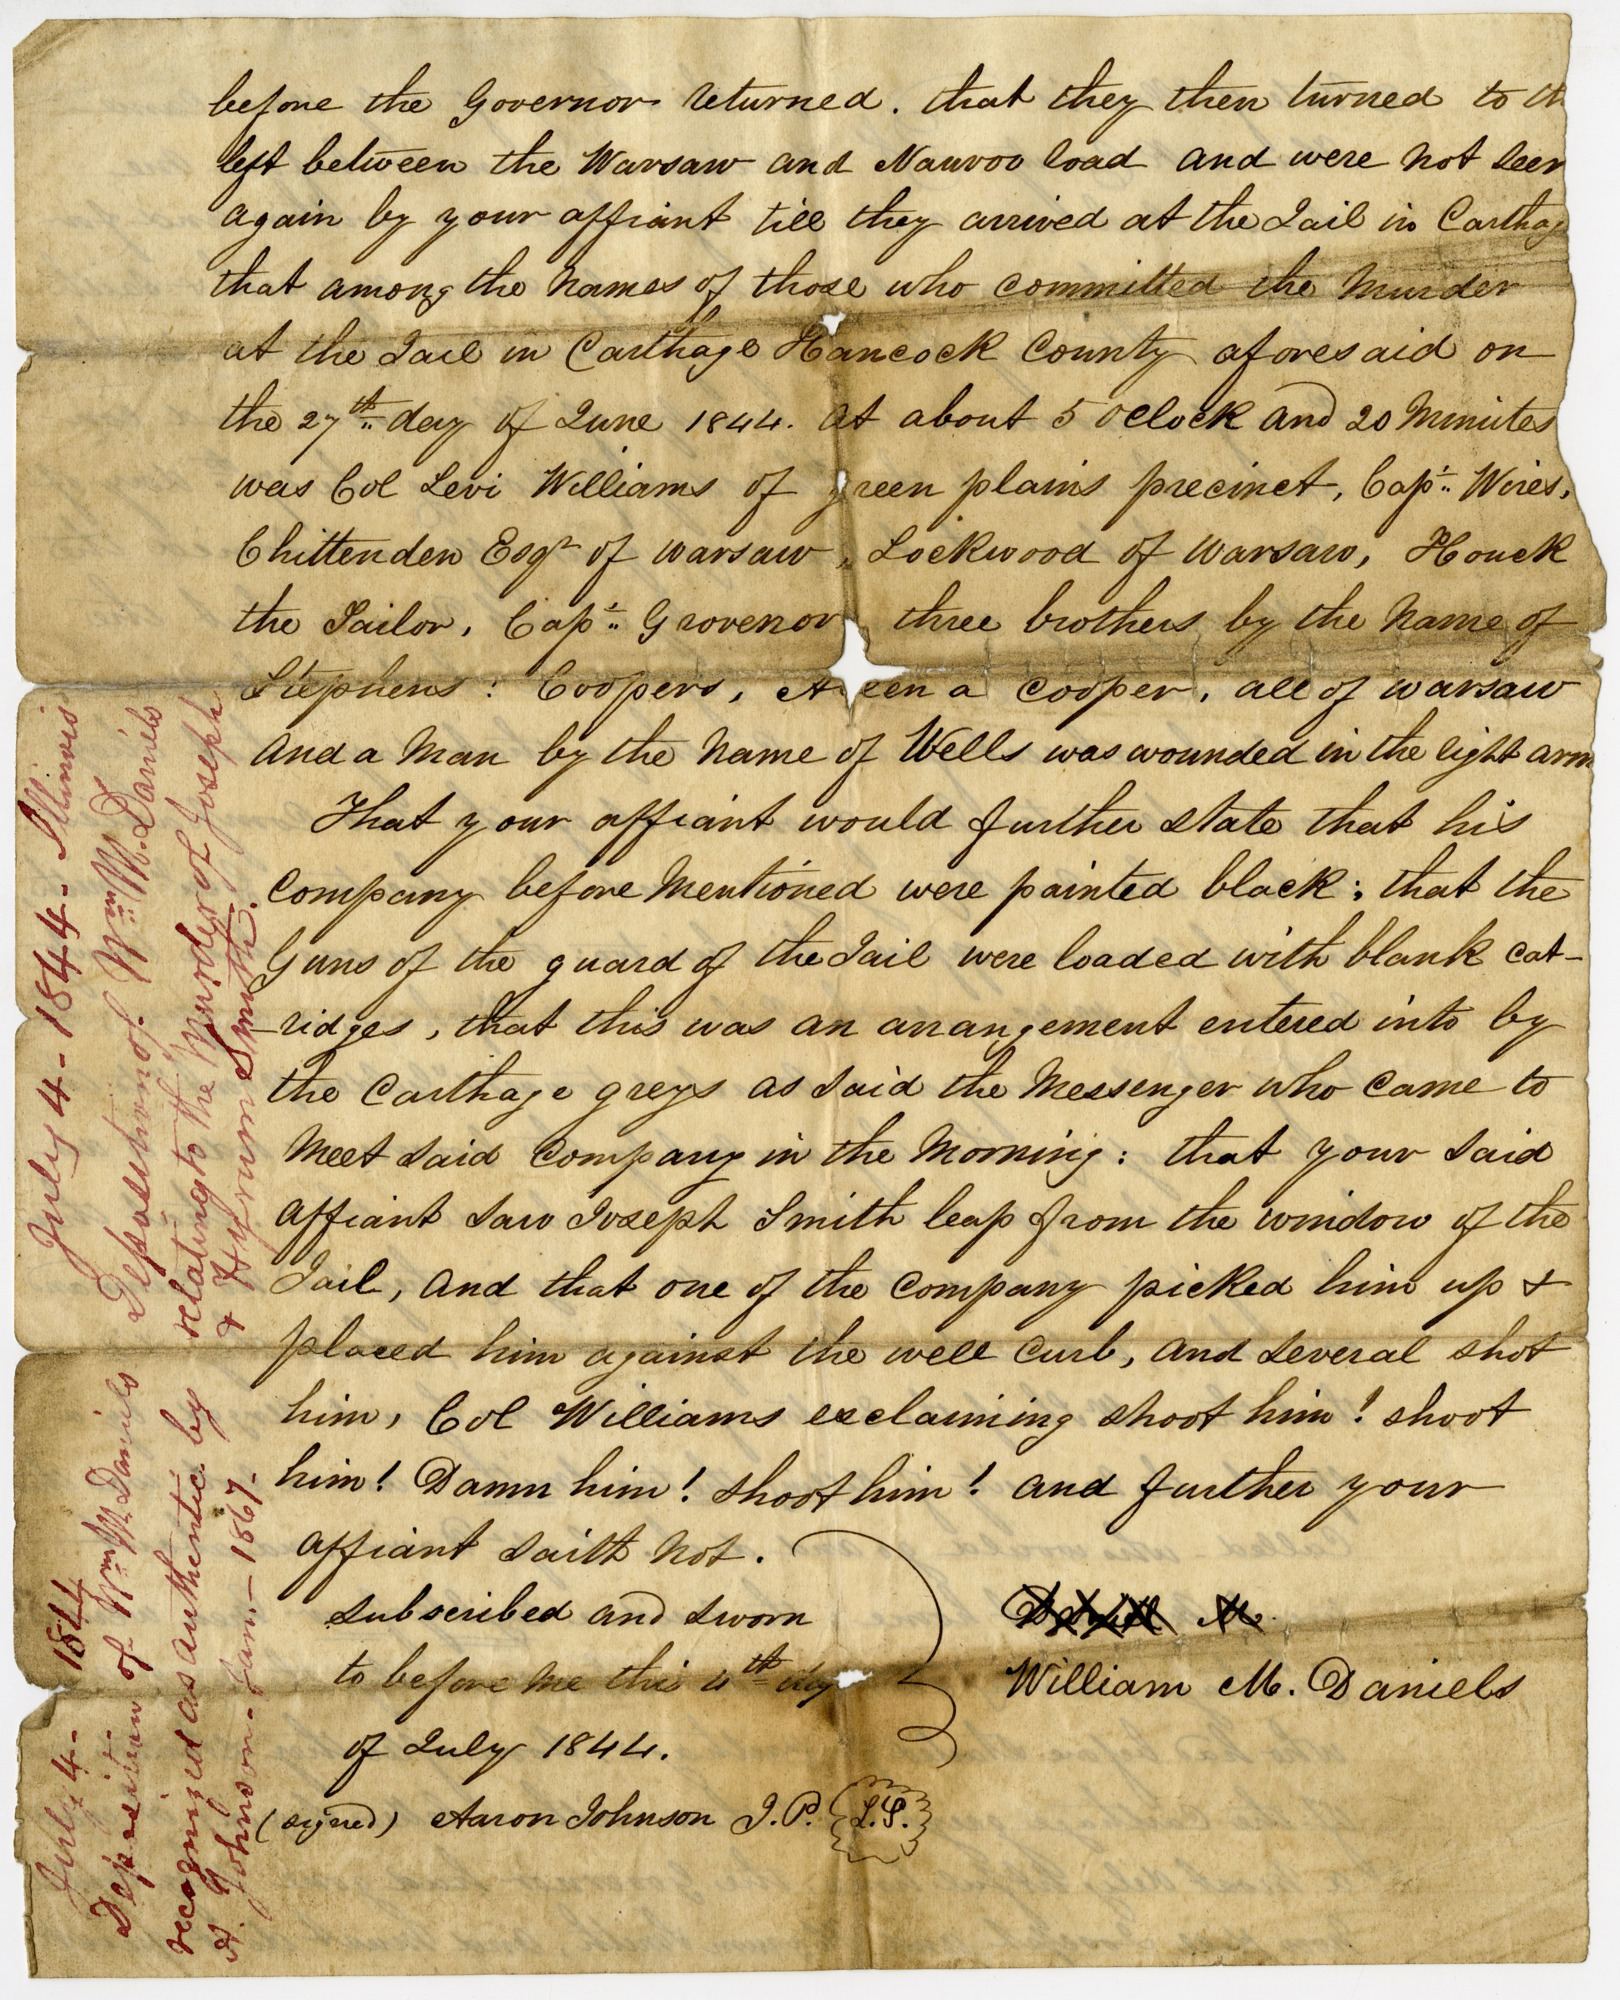 before the Governor returned. that they then turned to th
left between the Warsaw and Nauvoo road and were not seen
again by your affiant till they arrived at the Jail in Carthag
that among the names of those who committed the Murder
at the Jail in Carthage Hancock County aforesaid on
the 27th day of June 1844. at about 5 oclock and 20 Minutes
was Col Levi Williams of green plains precinct, Capt. Wires,
Chittenden Esqr of Warsaw, Lockwood of Warsaw, Houck
the Tailor, Capt. Grovenor three brothers by the name of
Stephens: Coopers, Allen a Cooper, all of Warsaw
and a Man by the name of Wells was wounded in the right arm
That your affiant would further state that his
company before mentioned were painted black; that the
Guns of the guard of the Jail were loaded with blank cat-
-ridges, that this was an arrangement entered into by
the Carthage greys as said the Messenger who came to
meet said company in the Morning: that your said
affiant saw Joseph Smith leap from the window of the
Jail, and that one of the company picked him up &
placed him against the well curb, and several shot
him, Col Williams exclaiming shoot him! shoot
him! Damn him! shoot him! and further your
affiant saith not.
subscribed and sworn
to before me this 4th day
of July 1844.
(signed) Aaron Johnson J.P. L.S.
William M. Daniels
July 4 - 1844 - Illinois
Deposition of Wm. M. Daniels
relating to the Murder of Joseph
& Hyrum Smith.
July 4 - 1844
Deposition of Wm M. Daniels
recognized as authentic by
A. Johnson - Jan. - 1867 -